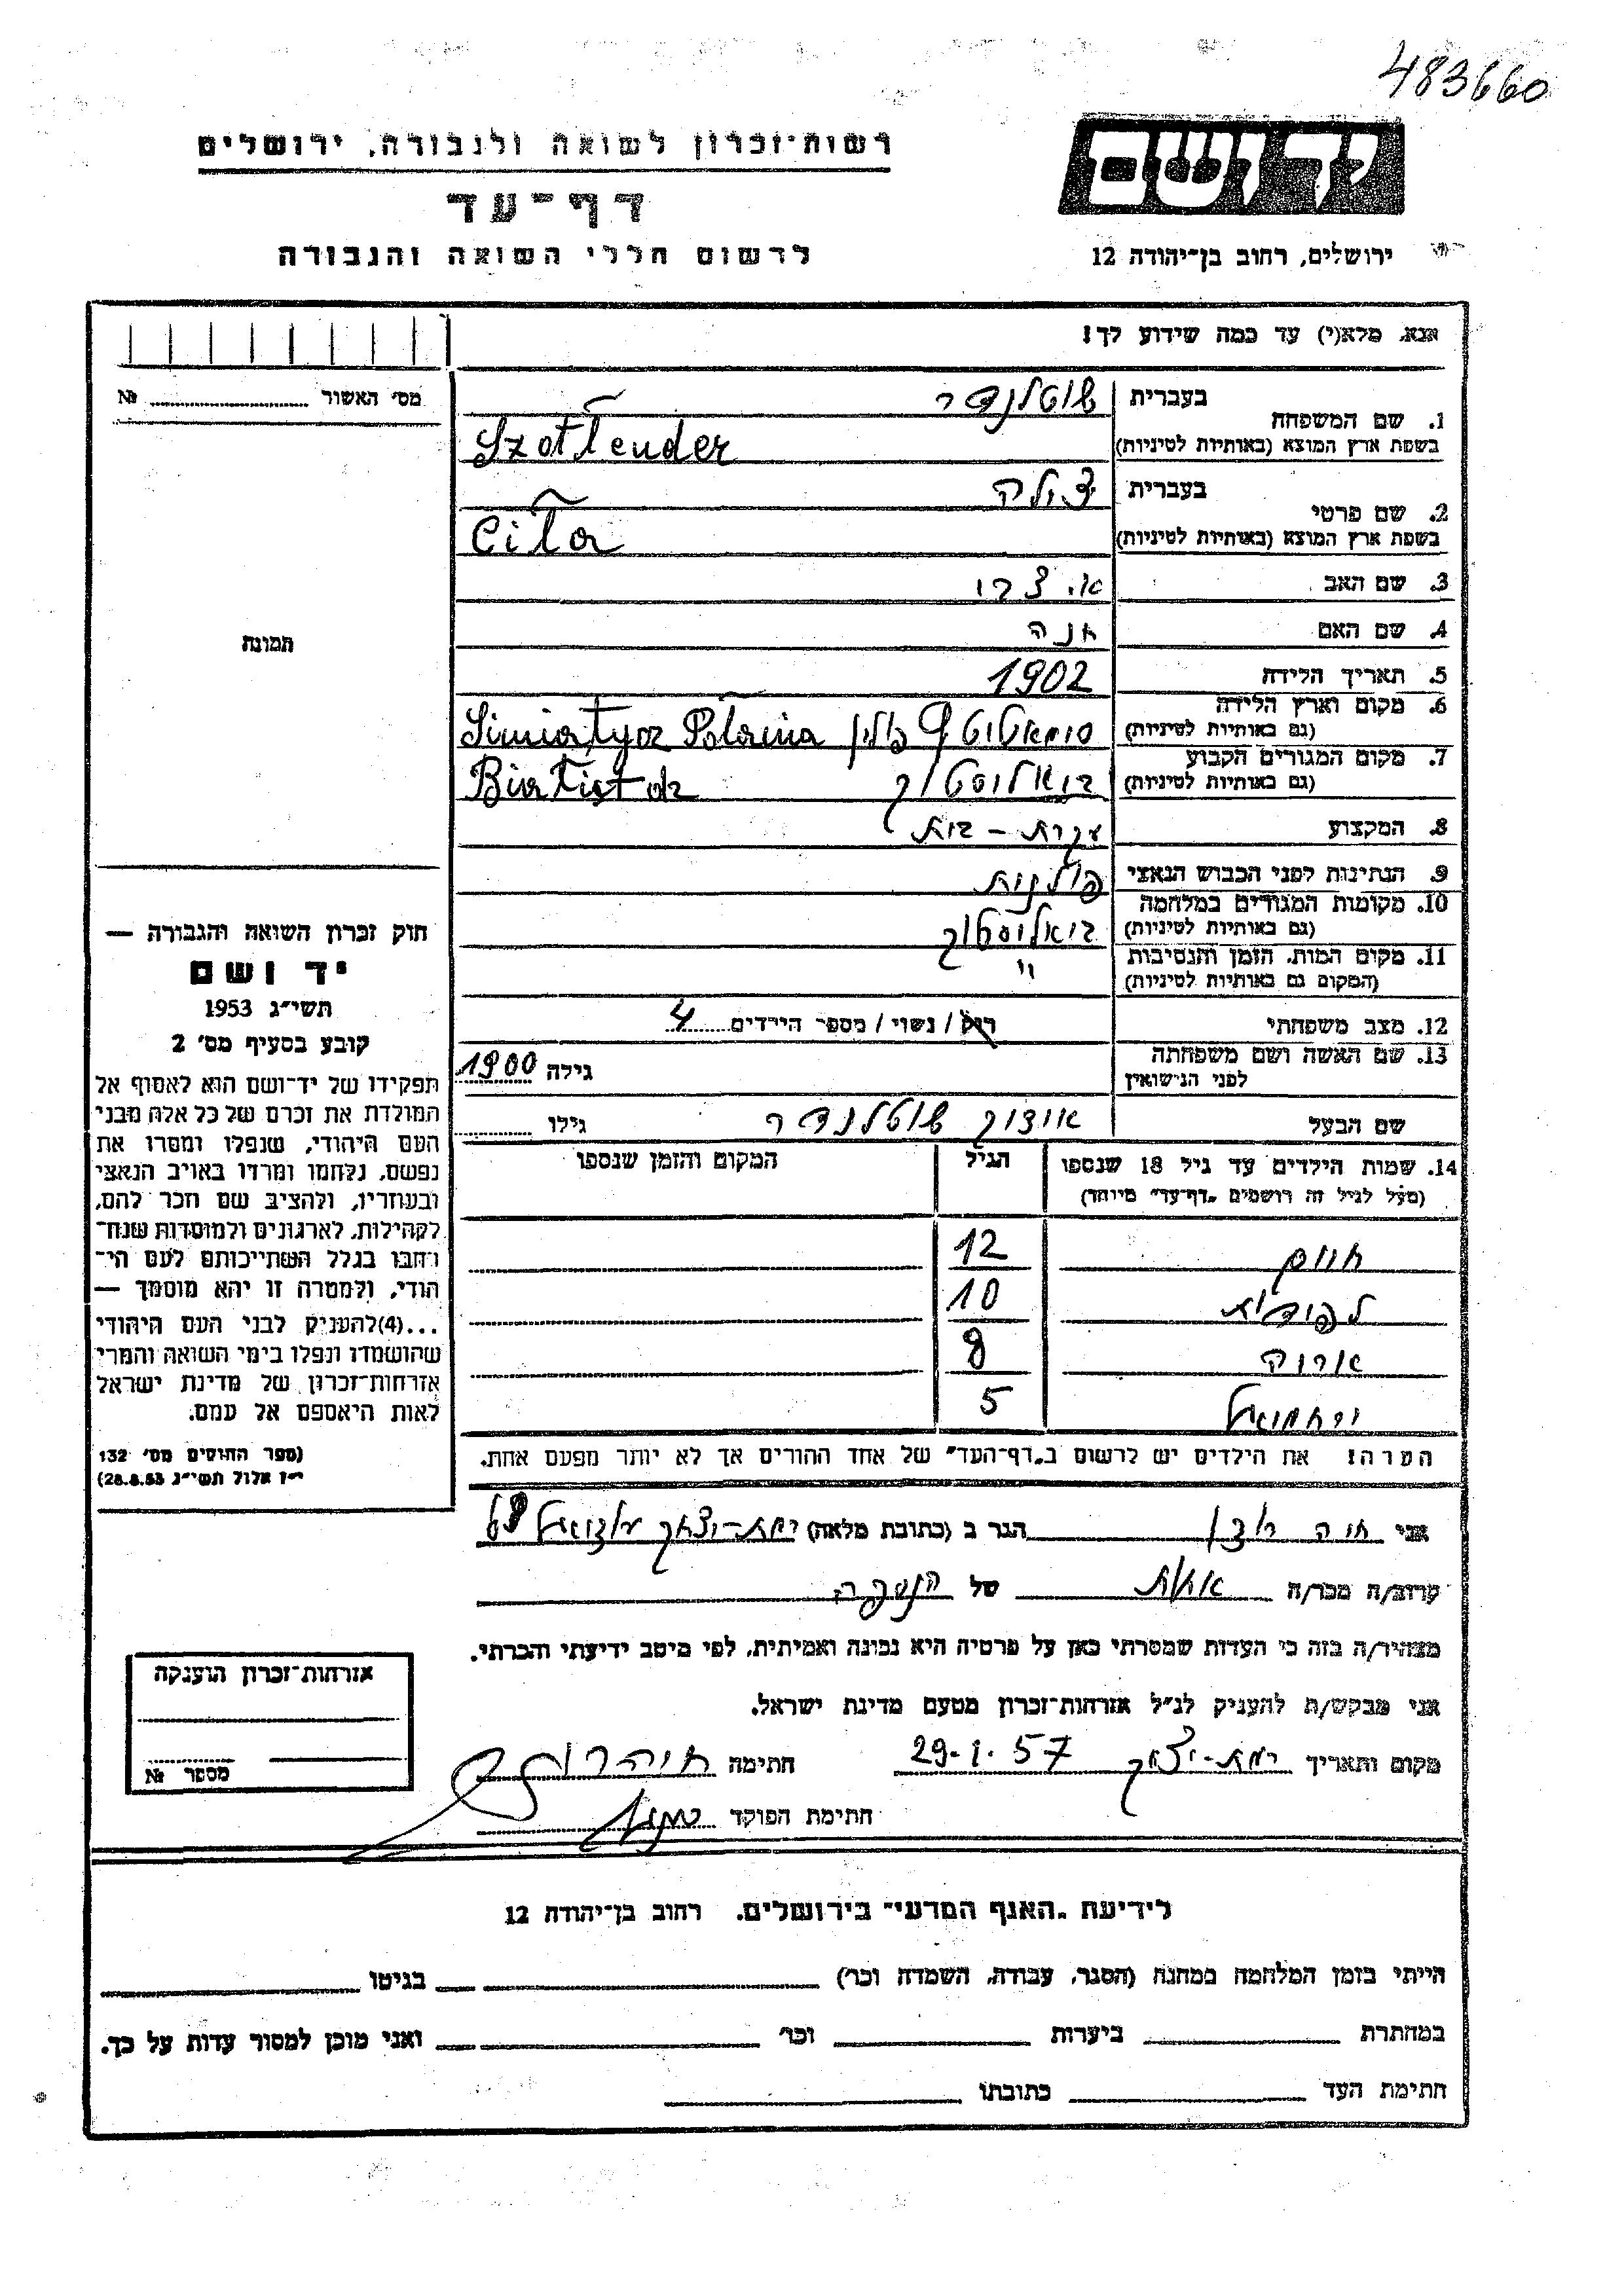 483660
יד ושם
רשות־זכרון לשואה ולגבורה, ירושלים
דף־עד
לרשום חללי השואה והגבורה
ירושלים, רחוב בן־יהודה 12
אנא, מלא(י) עד כמה שידוע לך!
מס׳ האשור № 
1. שם המשפחה בעברית שוטלנדר
בשפת ארץ המוצא (באותיות לטיניות) Szotlender
2. שם פרטי בעברית צילה
בשפת ארץ המוצא (באותיות לטיניות) Cila
3. שם האב
4. שם האם חנה
5. תאריך הלידה 1902
6. מקום וארץ הלידה (גם באותיות לטיניות) פולין
7. מקום המגורים הקבוע (גם באותיות לטיניות) ביאליסטוק
8. המקצוע עקרת-בית
9. הנתינות לפני הכבוש הנאצי פולנית
10. מקומות המגורים במלחמה (גם באותיות לטיניות) ביאליסטוק
11. מקום המות, הזמן והנסיבות (המקום גם באותיות לטיניות) "
12. מצב משפחתי רוק / נשוי / מספר הילדים 4
13. שם האשה ושם משפחתה לפני הנישואין גילה 1900
שם הבעל שוטלנדר גילו
14. שמות הילדים עד גיל 18 שנספו (מעל לגיל זה רושמים „דף־עד״ מיוחד) הגיל המקום והזמן שנספו
חיים 12
10
8
ירחמיאל 5
הערה: את הילדים יש לרשום ב„דף־העד״ של אחד ההורים אך לא יותר מפעם אחת.
תמונה
חוק זכרון השואה והגבורה —
יד ושם
תשי״ג 1953
קובע בסעיף מס׳ 2
תפקידו של יד־ושם הוא לאסוף אל
המולדת את זכרם של כל אלה מבני
העם היהודי, שנפלו ומסרו את
נפשם, נלחמו ומרדו באויב הנאצי
ובעוזריו, ולהציב שם וזכר להם,
לקהילות, לארגונים ולמוסדות שנח־
רבו בגלל השתייכותם לעם הי־
הודי, ולמטרה זו יהא מוסמך —
...(4)להעניק לבני העם היהודי
שהושמדו ונפלו בימי השואה והמרי
אזרחות־זכרון של מדינת ישראל
לאות היאספם אל עמם.
(ספר החוקים מס׳ 132
י״ז אלול תשי״ג 28.8.53)
אני חיה הגר ב (כתובת מלאה) רמת-יצחק
קרוב/ה מכר/ה אחות של הנספה
מצהיר/ה בזה כי העדות שמסרתי כאן על פרטיה היא נכונה ואמיתית, לפי מיטב ידיעתי והכרתי.
אני מבקש/ת להעניק לנ״ל אזרחות־זכרון מטעם מדינת ישראל.
מקום ותאריך רמת-יצחק 29.1.57 חתימה
חתימת הפוקד
אזרחות־זכרון הוענקה
מספר №
לידיעת „האגף המדעי״ בירושלים, רחוב בן־יהודה 12
הייתי בזמן המלחמה במחנה (הסגר, עבודה, השמדה וכו׳) בגיטו
במחתרת ביערות וכו׳ ואני מוכן למסור עדות על כך.
חתימת העד כתובתו